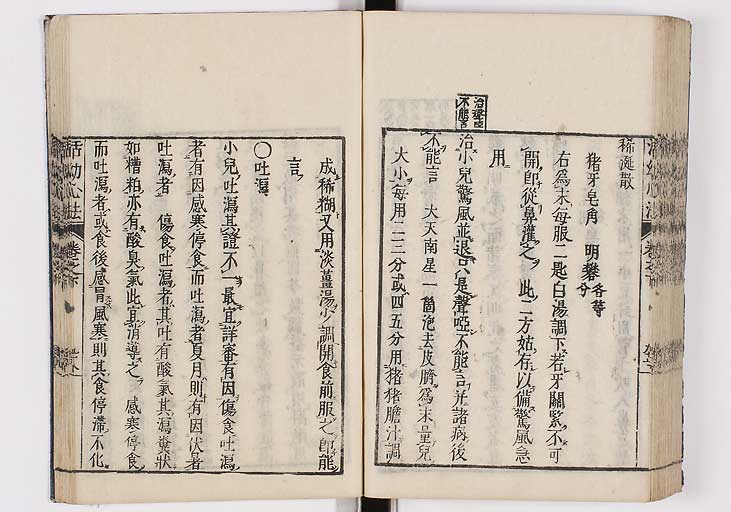 稀涎散
猪牙皂角　明礬各等分
右為末每服一匙白湯調下若牙關緊不可
開即從鼻灌之　此二方姑存以備驚風急
用
治小兒驚風並退只是聲啞不能言并諸病後
不能言　大天南星一箇泡去皮臍為末量兒
大小每用二三分或四五分用猪猪膽汁調
成稀糊又用淡薑湯少調開食前服之即能
言
○吐瀉
小兒吐瀉其證不一最宜詳審有因傷食吐瀉
者有因感寒停食而吐瀉者夏月則有因伏暑
吐瀉者　傷食吐瀉者其吐有酸氣其瀉糞狀
如糟粕亦有酸臭氣此宜消導之　感寒停食
而吐瀉者或食後感冒風寒則其食停滯不化
活幼心法
卷之